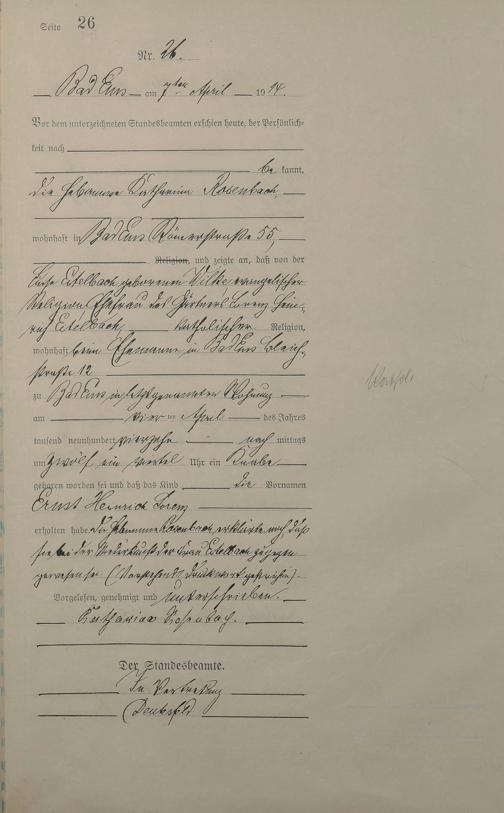 Seite 26
Nr. 26.
Bad Ems am 7ten April 1914.
Vor dem unterzeichneten Standesbeamten erschien heute, der Persönlich-
keit nach
be kannt,
die Hebamme Katharina Rosenbach,
wohnhaft in Bad Ems Römerstraße 55,
Religion, und zeigte an, daß von der
Luise Eitelbach geborenen Wilke evangelischer
Religion Ehefrau des Gärtners Lorenz Hein-
rich Eitelbach, katholischer Religion,
wohnhaft beim Ehemanne in Bad Ems Bleich-
straße 12
zu Bad Ems in letztgenannter Wohnung
am vier ten April des Jahres
tausend neunhundert vierzehn nach mittags
um zwölf ein viertel Uhr ein Knabe
geboren worden sei und daß das Kind die Vornamen
Ernst Heinrich Lorenz
erhalten habe. Die Hebamme Rosenbach erklärte noch, daß
sie bei der Niederkunft der Frau Eitelbach zugegen
gewesen sei. (Vorstehend 1 Druckwort gestrichen).
Vorgelesen, genehmigt und unterschrieben.
Katharina Rosenbach.
Der Standesbeamte.
In Vertretung